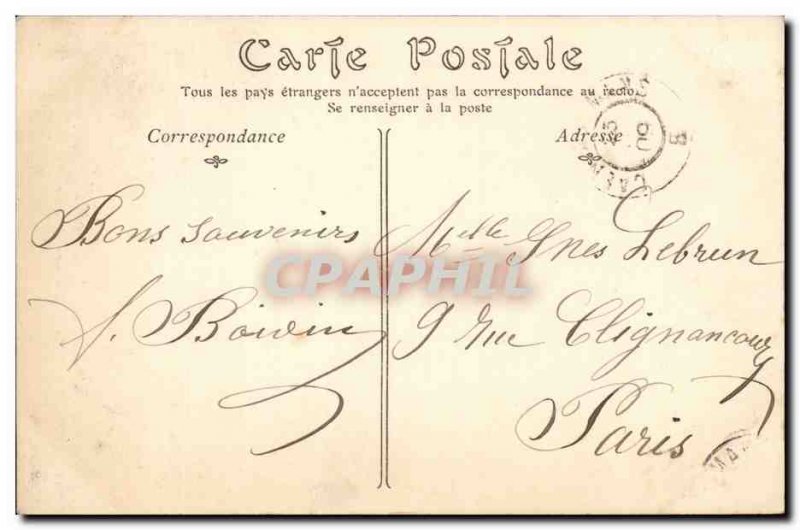 Carte Postale
Tous les pays étrangers n'acceptent pas la correspondance au recto
Se renseigner à la poste
Correspondance
Adresse
Bons souvenirs
Boivin
Melle Ynes Lebrun
9 rue Clignancourt
Paris
CPAPHIL